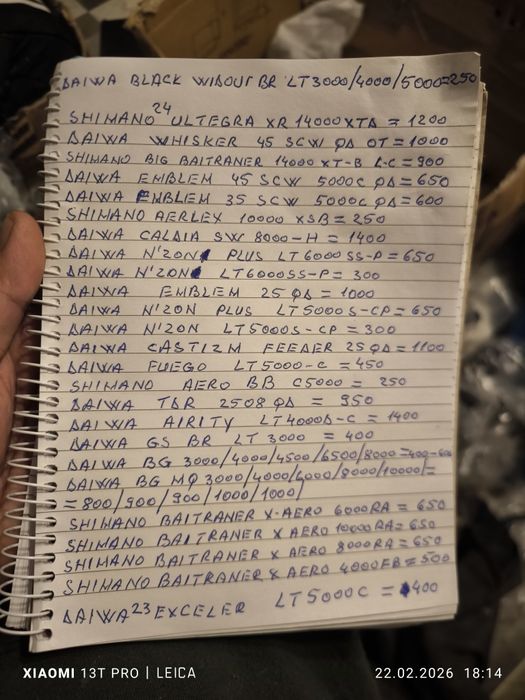 DAIWA BLACK WIDOW BR LT3000/4000/5000=250
SHIMANO 24 ULTEGRA XR 14000XTD = 1200
DAIWA WHISKER 45 SCW QD OT = 1000
SHIMANO BIG BAITRANER 14000 XT-B L-C = 900
DAIWA EMBLEM 45 SCW 5000C QD = 650
DAIWA EMBLEM 35 SCW 5000C QD = 600
SHIMANO AERLEX 10000 XSB = 250
DAIWA CALDIA SW 8000-H = 1400
DAIWA N'ZON PLUS LT6000SS-P = 650
DAIWA N'ZON LT6000SS-P = 300
DAIWA EMBLEM 25 QD = 1000
DAIWA N'ZON PLUS LT5000S-CP = 650
DAIWA N'ZON LT5000S-CP = 300
DAIWA CASTIZM FEEDER 25QD = 1100
DAIWA FUEGO LT5000-C = 450
SHIMANO AERO BB C5000 = 250
DAIWA TDR 2508 QD = 950
DAIWA AIRITY LT4000D-C = 1400
DAIWA GS BR LT 3000 = 400
DAIWA BG 3000/4000/4500/6500/8000 =400-600
DAIWA BG MQ 3000/4000/6000/8000/10000/=
=800/900/900/1000/1000/
SHIMANO BAITRANER X-AERO 6000RA = 650
SHIMANO BAITRANER X AERO 10000RA= 650
SHIMANO BAITRANER X AERO 8000RA = 650
SHIMANO BAITRANER X AERO 4000FB = 500
DAIWA 23 EXCELER LT5000C = 400
XIAOMI 13T PRO | LEICA
22.02.2026 18:14